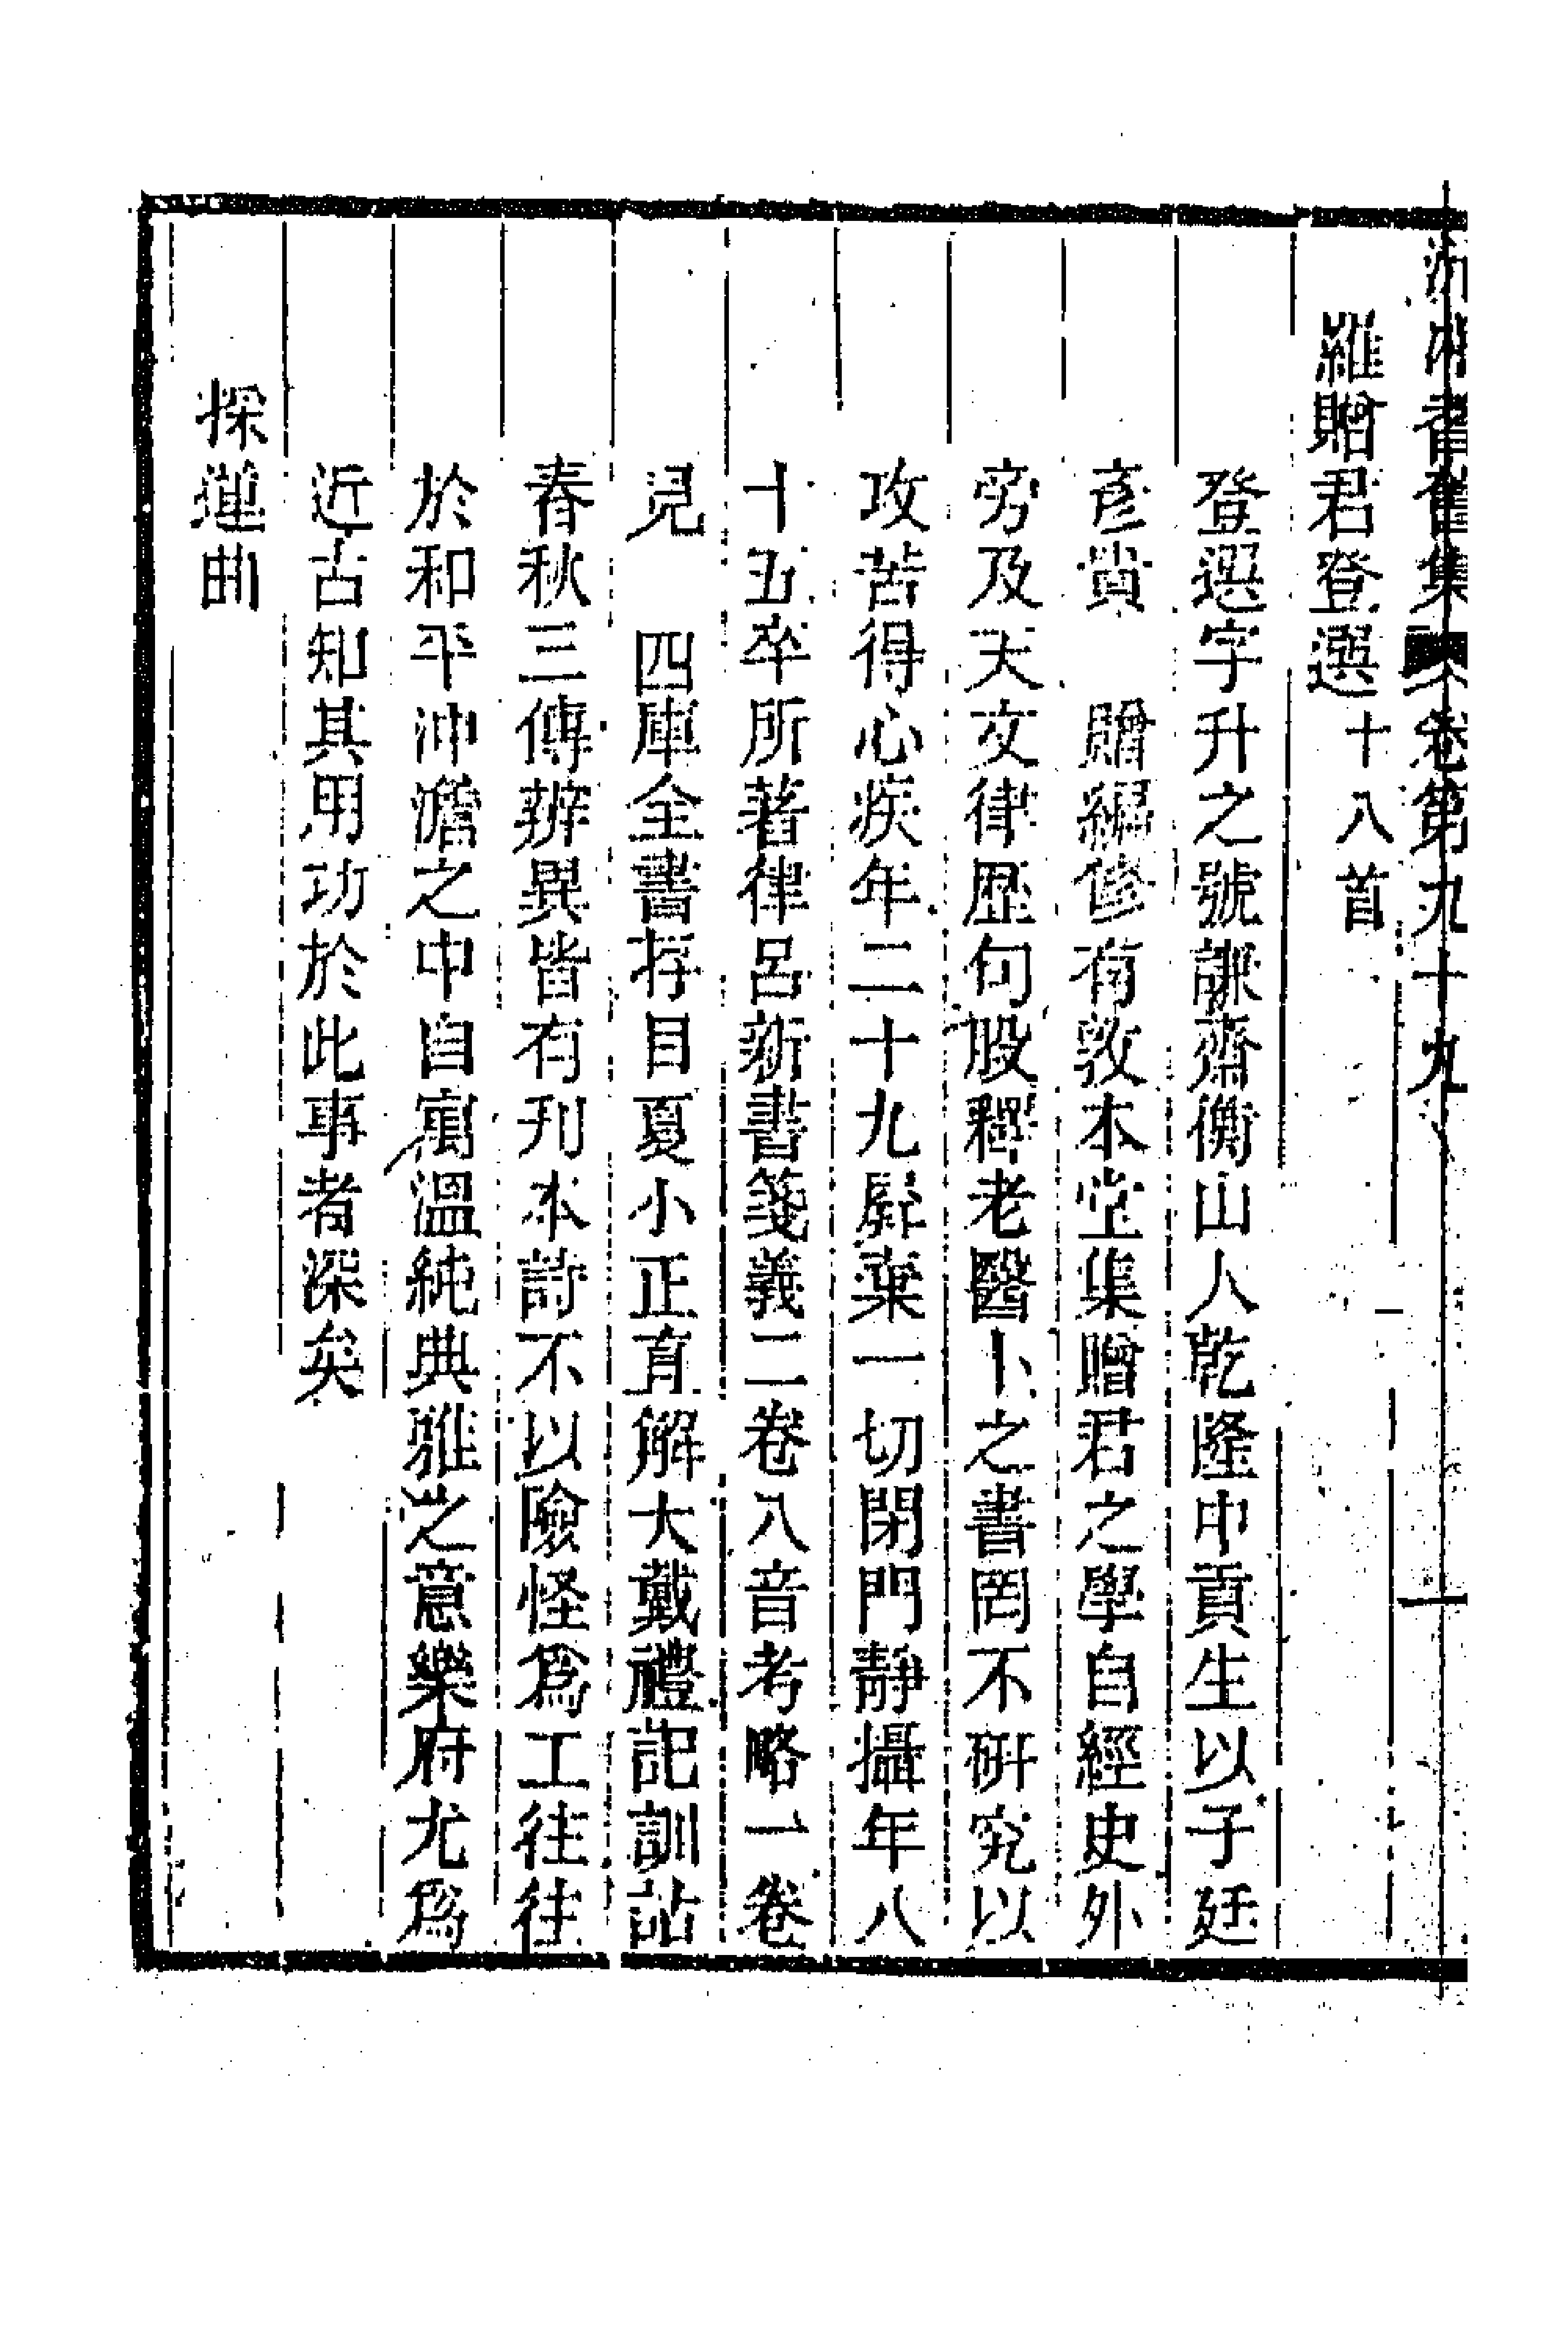 沅湘耆舊集卷第九十九 一
羅贈君登選十八首
登選字升之號謙齋衡山人乾隆中貢生以子廷
彥貴 贈編修有敦本堂集贈君之學自經史外
旁及天文律歷句股釋老醫卜之書罔不硏究以
攻苦得心疾年二十九屏棄一切閉門靜攝年八
十五卒所著律呂新書箋義二卷八音考略一卷
見 四庫全書存目夏小正直解大戴禮記訓詁
春秋三傳辨異皆有刊本詩不以險怪爲工往往
於和平沖澹之中自寓溫純典雅之意樂府尤爲
近古知其用功於此事者深矣
採蓮曲